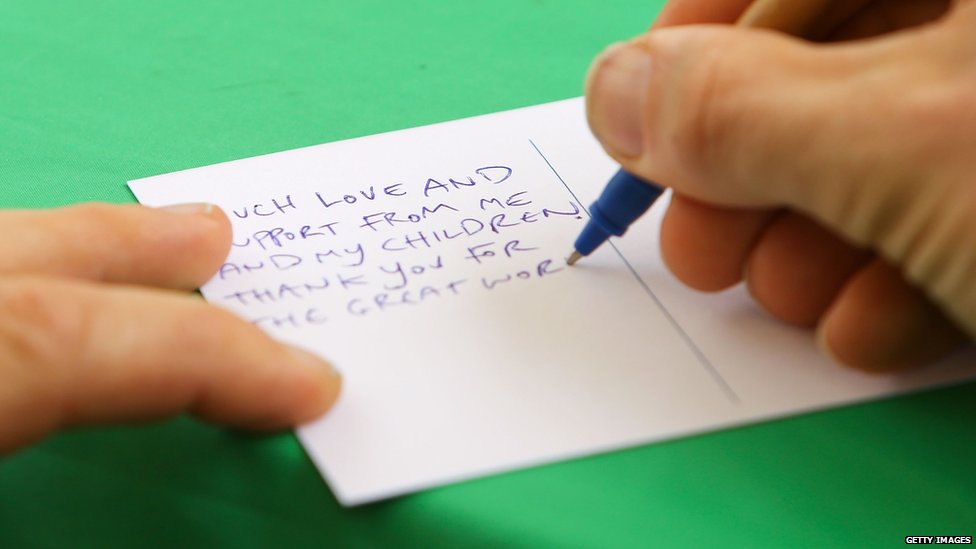 UCH LOVE AND
UPPORT FROM ME
AND MY CHILDREN!
THANK YOU FOR
THE GREAT WOR
GETTY IMAGES